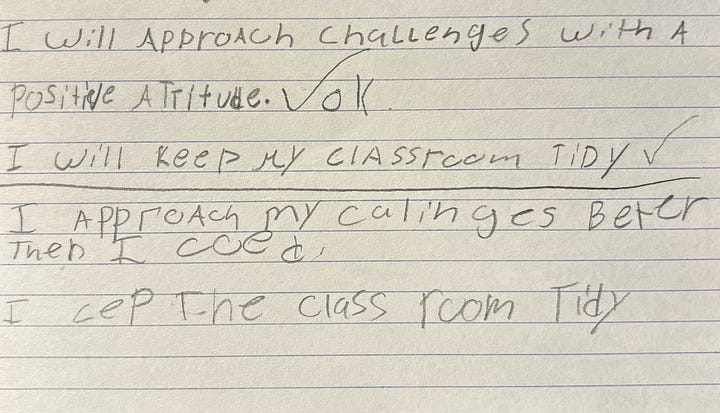 I will Approach challenges with A
Positive Attitude. ✓ ok
I will keep my classroom Tidy ✓
I Approach my calinges Beter
Then I coed.
I cep The class room Tidy